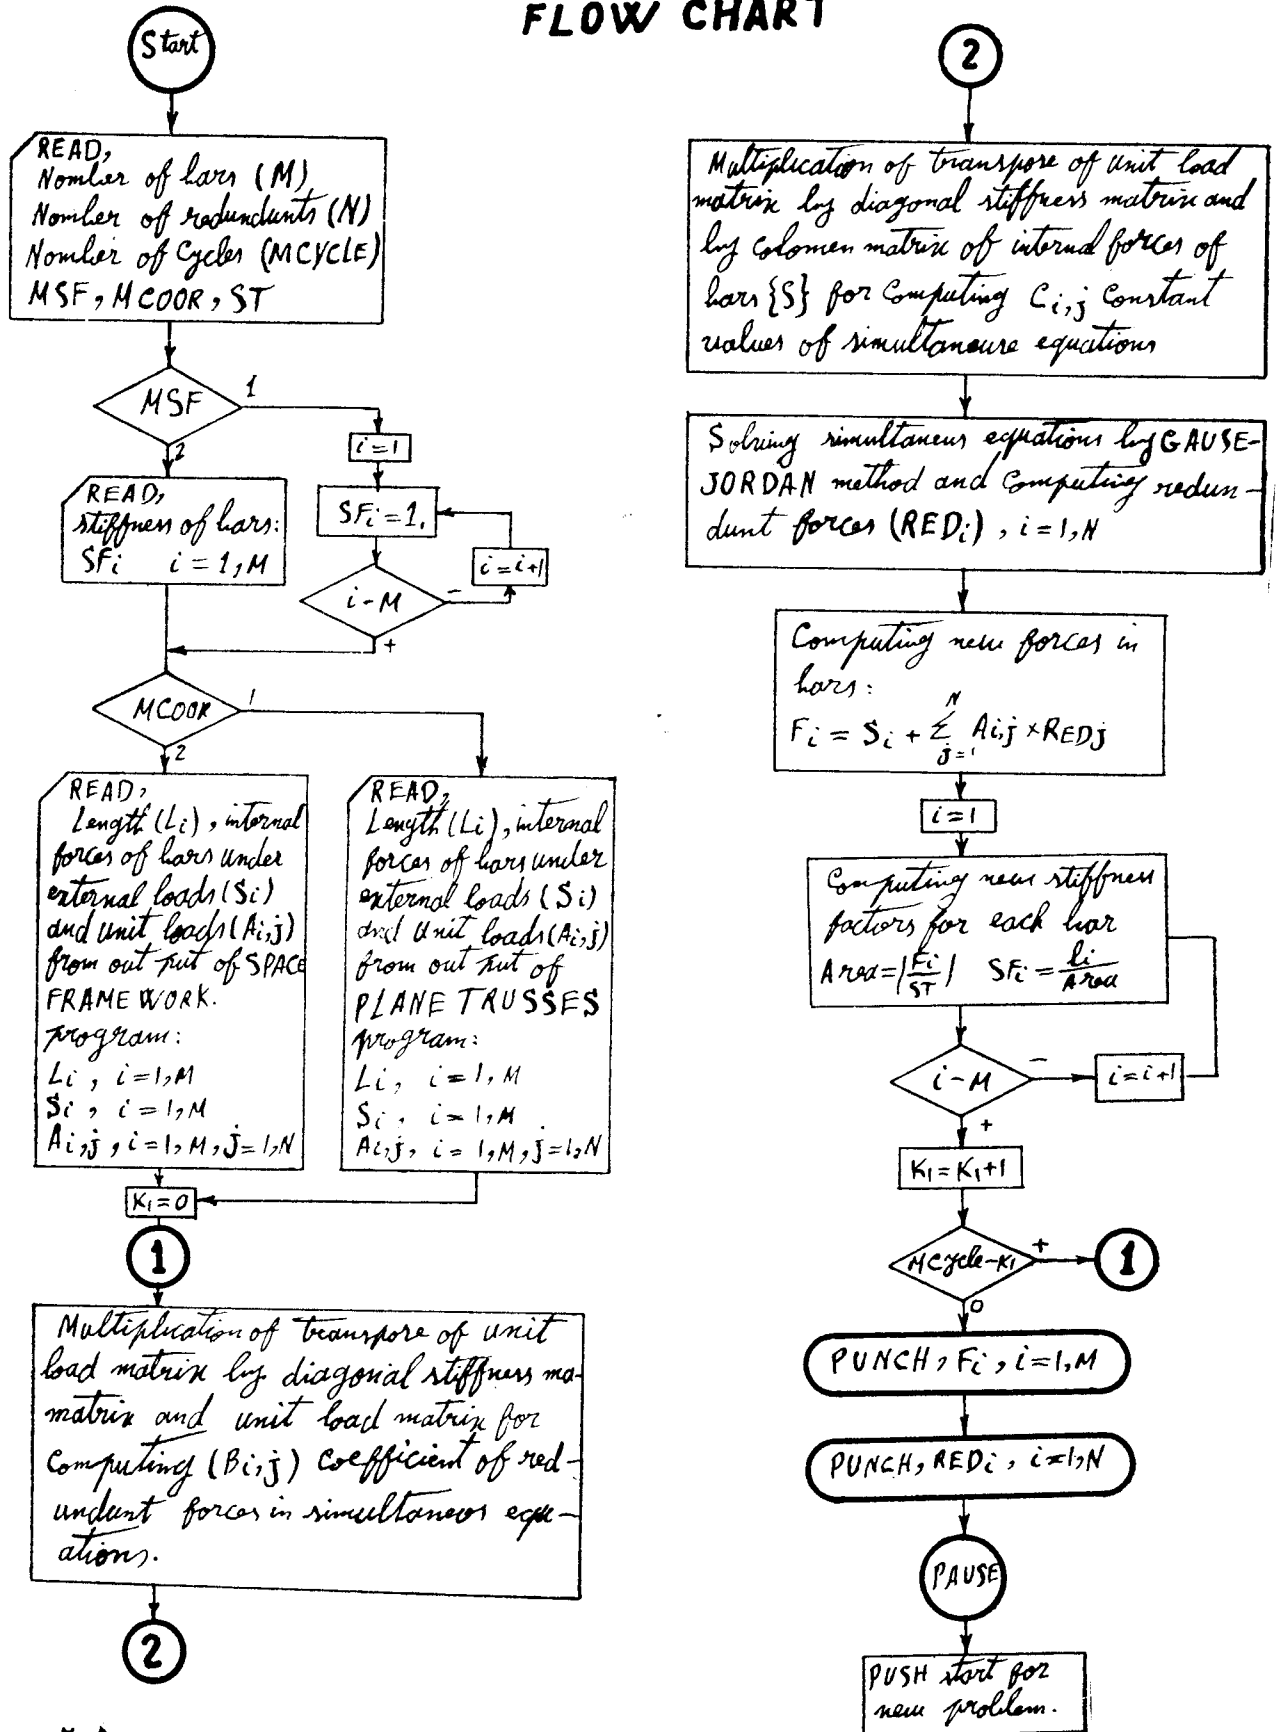 FLOW CHART
Start
READ,
Nomber of bars (M)
Nomber of redundunts (N)
Nomber of Cycles (MCYCLE)
MSF, MCOOR, ST
MSF
1
2
i=1
SFi=1.
i=i+1
i-M
-
+
READ,
stiffness of bars:
SFi i=1,M
MCOOR
1
2
READ,
Length (Li), internal
forces of bars under
external loads (Si)
and unit loads (Ai,j)
from out put of SPACE
FRAME WORK.
program:
Li, i=1,M
Si, i=1,M
Ai,j, i=1,M, j=1,N
READ,
Length (Li), internal
forces of bars under
external loads (Si)
and unit loads (Ai,j)
from out put of
PLANE TRUSSES
program:
Li, i=1,M
Si, i=1,M
Ai,j, i=1,M, j=1,N
K1=0
1
Multiplication of transpore of unit
load matrix by diagonal stiffness ma-
matrix and unit load matrix for
Computing (Bi,j) coefficient of red-
undunt forces in simultaneos equ-
ations.
2
2
Multiplication of transpore of unit load
matrix by diagonal stiffness matrix and
by colomen matrix of internal forces of
bars {S} for computing Ci,j Constant
values of simultaneure equations
Solving simultaneus equations by GAUSE-
JORDAN method and Computing redun-
dunt forces (REDi), i=1,N
Computing new forces in
bars:
Fi = Si + Σ_{j=1}^{N} Ai,j × REDj
i=1
Computing new stiffness
factors for each bar
Area=|Fi/ST| SFi = li/Area
i-M
-
i=i+1
+
K1=K1+1
MCycle-K1
+
1
0
PUNCH, Fi, i=1,M
PUNCH, REDi, i=1,N
PAUSE
PUSH start for
new problem.